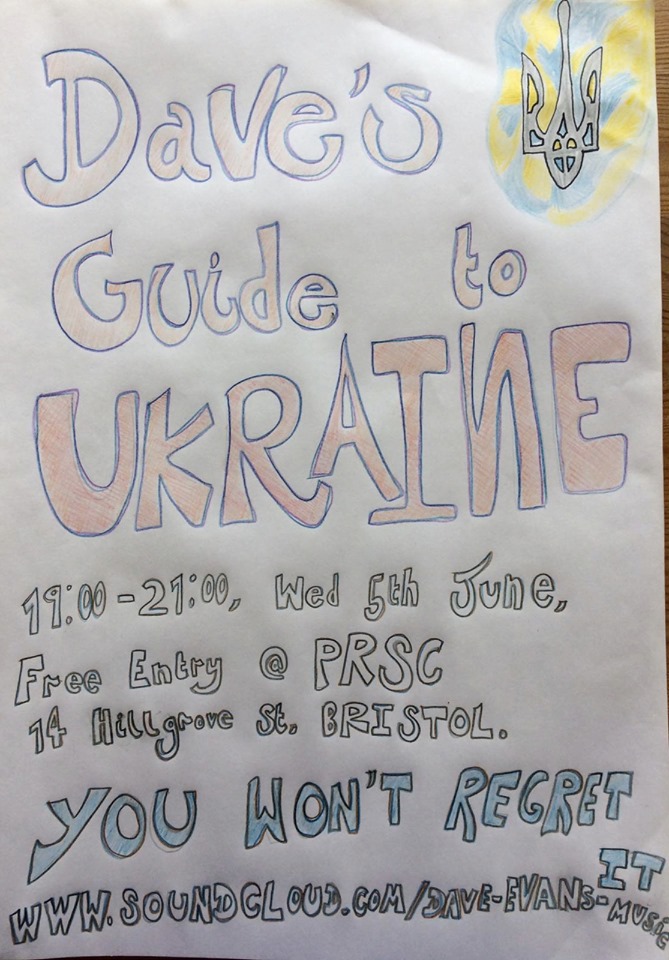 Dave's
Guide to
UKRAINE
19:00-21:00, Wed 5th June,
Free Entry @ PRSC
14 Hillgrove St. BRISTOL.
YOU WON'T REGRET
IT
WWW.SOUNDCLOUD.COM/DAVE-EVANS-MUSIC